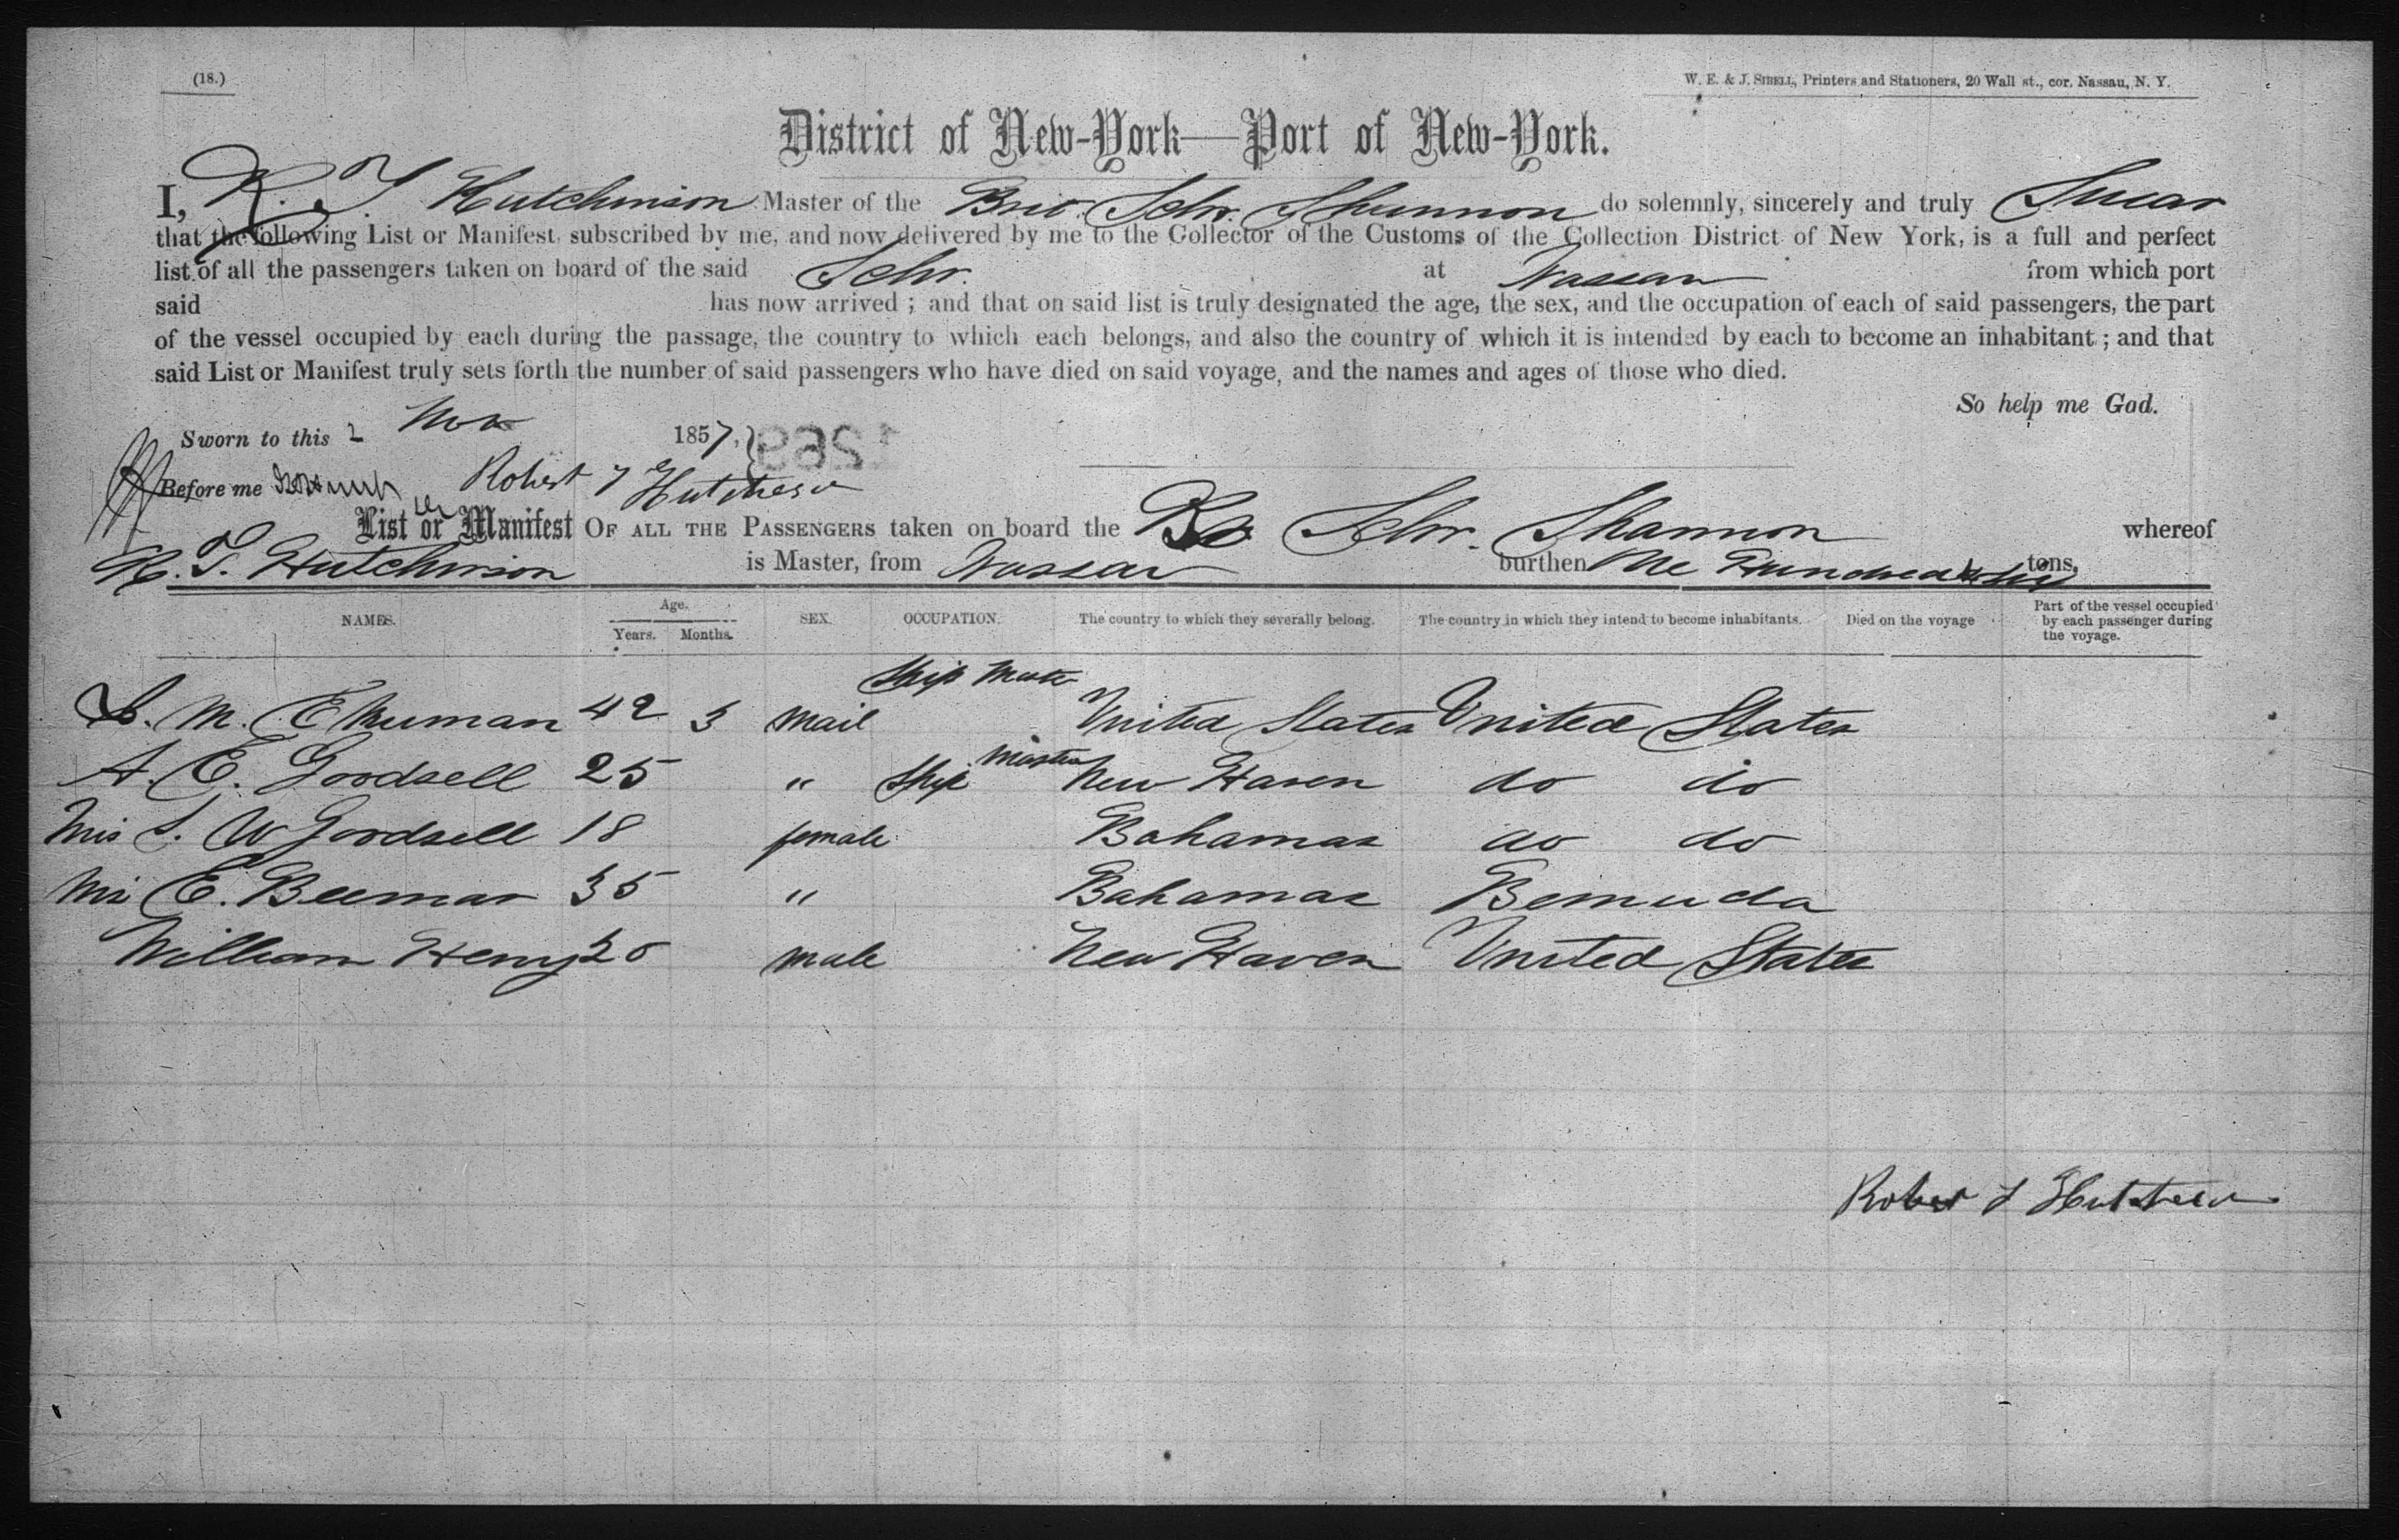 (18.)
W. E. & J. SIBELL, Printers and Stationers, 20 Wall st., cor. Nassau, N. Y.
District of New-York—Port of New-York.
I, R. T. Hutchinson Master of the Schr. Shannon do solemnly, sincerely and truly Swear
that the following List or Manifest, subscribed by me, and now delivered by me to the Collector of the Customs of the Collection District of New York, is a full and perfect
list of all the passengers taken on board of the said Schr. at Nassau from which port
said has now arrived ; and that on said list is truly designated the age, the sex, and the occupation of each of said passengers, the part
of the vessel occupied by each during the passage, the country to which each belongs, and also the country of which it is intended by each to become an inhabitant ; and that
said List or Manifest truly sets forth the number of said passengers who have died on said voyage, and the names and ages of those who died.
So help me God.
Sworn to this 2 Nov 1857,
Before me Robert T
List or Manifest OF ALL THE PASSENGERS taken on board the Br Schr. Shannon whereof
R. T. Hutchinson is Master, from Nassau burthen One Hundred tons,
NAMES. Age. Years. Months. SEX. OCCUPATION. The country to which they severally belong. The country in which they intend to become inhabitants. Died on the voyage Part of the vessel occupied by each passenger during the voyage.
M. 42 3 mail Ship United States United States
A. E. Goodsell 25 " Ship Master New Haven do do
S. W Goodsell 18 female Bahamas do do
E. Beeman 35 " Bahamas Bemuda
William Henry 20 male New Haven United States
Robert T